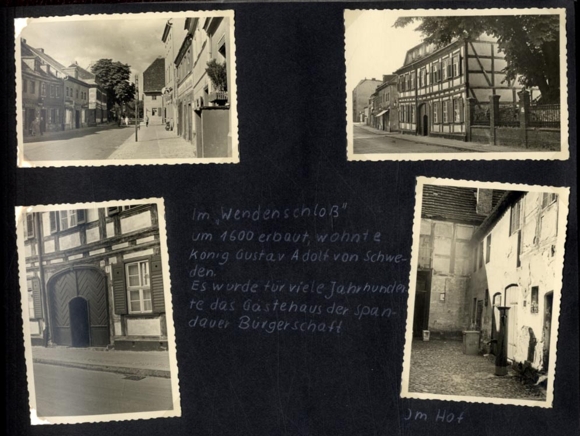 Im „Wendenschloß"
um 1600 erbaut, wohnte
König Gustav Adolf von Schwe-
den.
Es wurde für viele Jahrhunder
te das Gästehaus der Span-
dauer Bürgerschaft
Im Hof